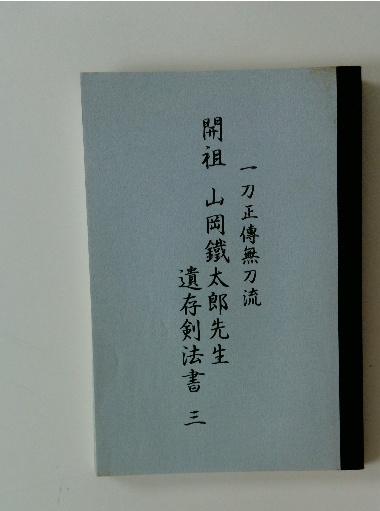 一刀正傳無刀流
開祖 山岡鐵太郎先生
遺存剣法書 三